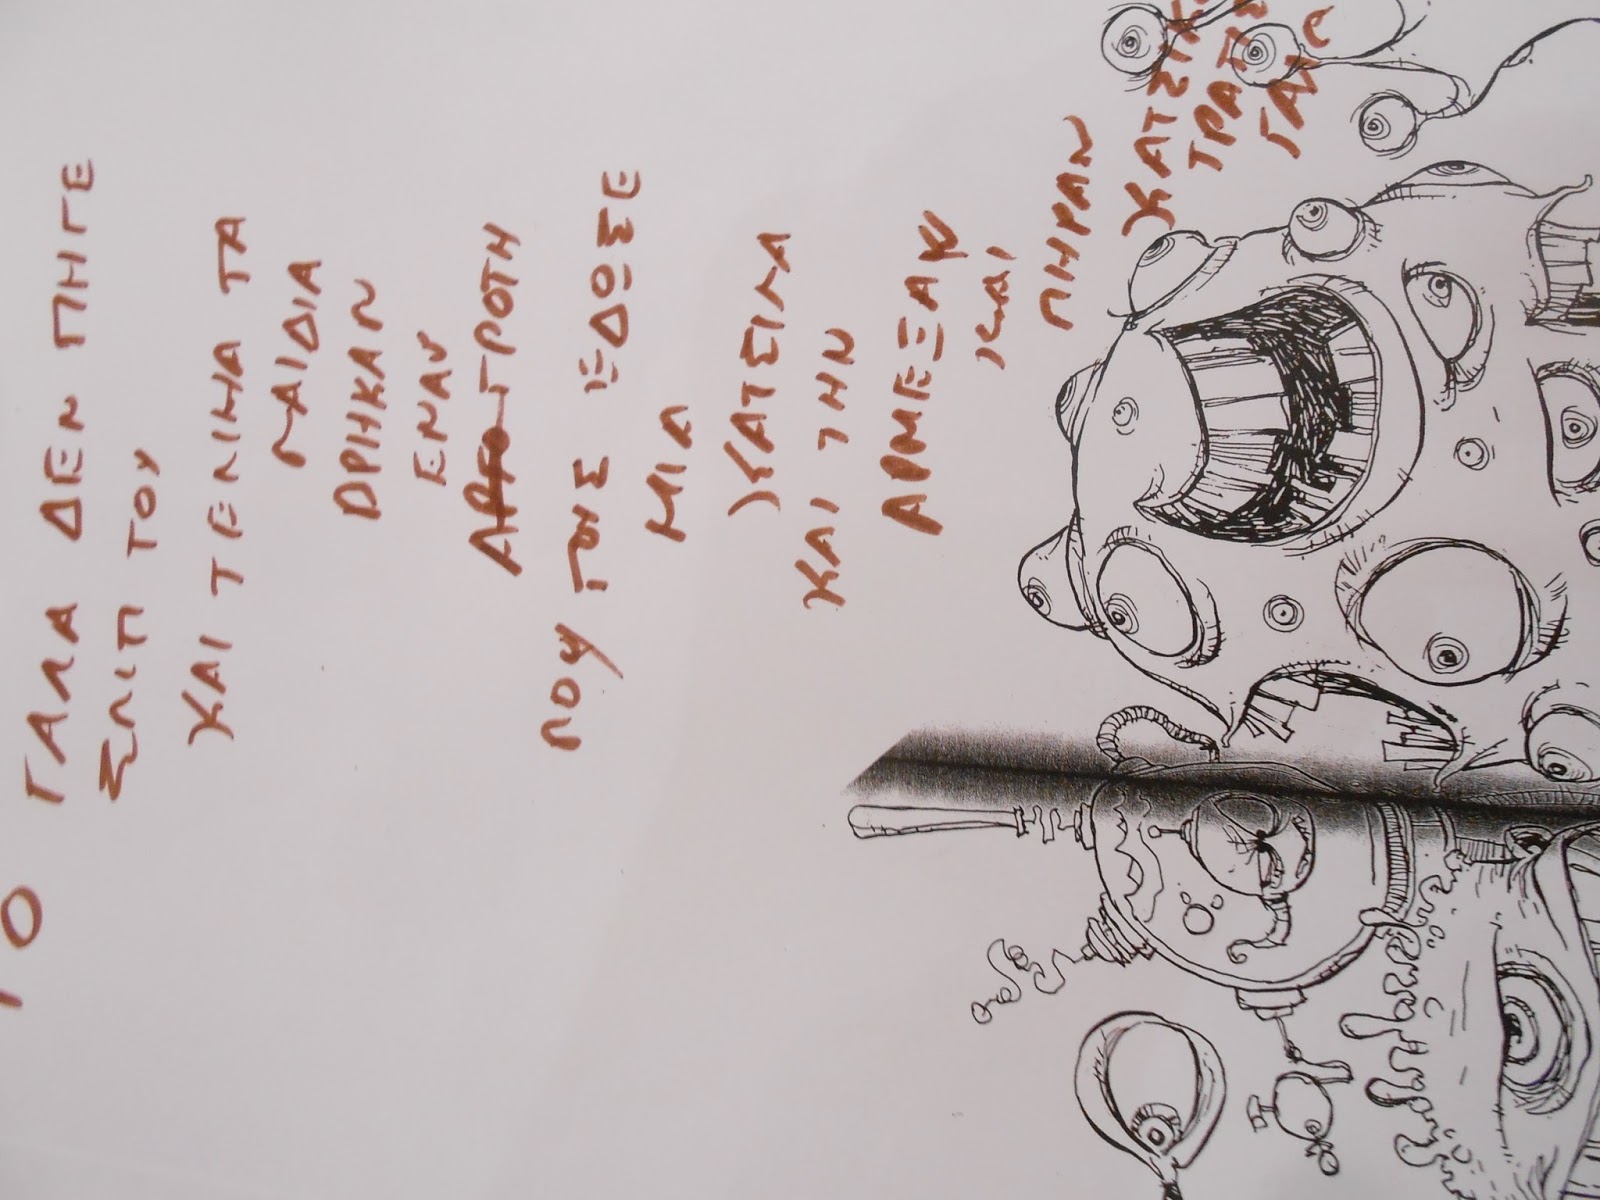 ΤΟ ΓΑΛΑ ΔΕΝ ΠΗΓΕ
ΣΠΙΤΙ ΤΟΥ
ΚΑΙ ΤΕΛΙΚΑ ΤΑ
ΠΑΙΔΙΑ
ΒΡΗΚΑΝ
ΕΝΑΝ
ΑΓΡΟΤΗ
ΠΟΥ ΤΟΥΣ ΕΔΩΣΕ
ΜΙΑ
ΚΑΤΣΙΚΑ
ΚΑΙ ΤΗΝ
ΑΡΜΕΞΑΝ
ΚΑΙ
ΠΗΡΑΝ